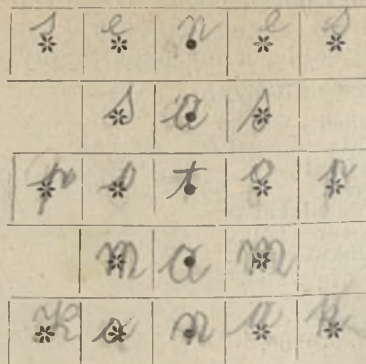 s e n e s
s a s
p o t o p
m a m
K a n a k